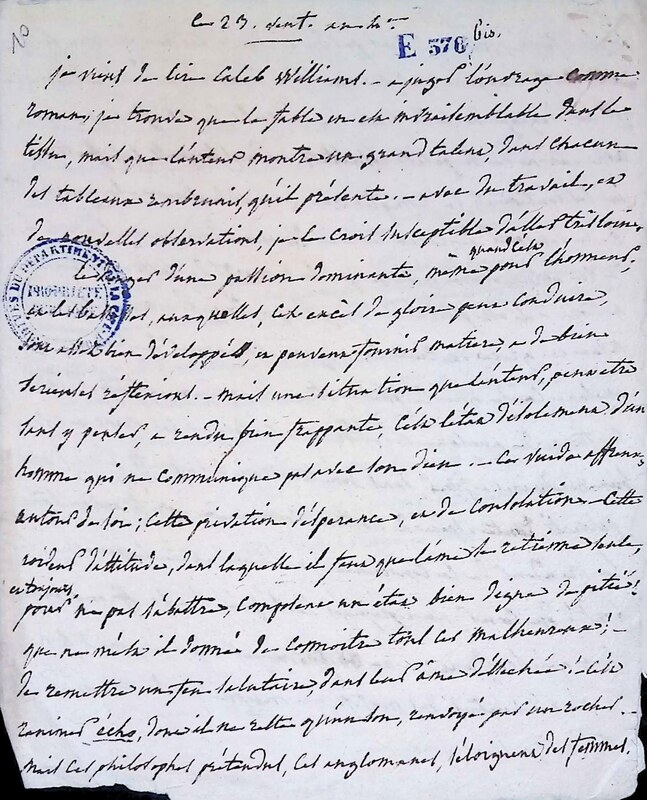 10
le 23. vent. an 4.e
E 376 bis.
je viens de lire Caleb Williams. – a juger l'ouvrage comme
roman, je trouve que la fable en est invraisemblable dans le
tissu, mais que l'auteur montre un grand talent, dans chacun
des tableaux rembrunis, qu'il présente. – avec du travail, et
de nouvelles observations, je le crois susceptible d'aller très loin.
d'une passion dominante, même quand c'est pour l'honneur,
et les auxquelles, cet excès de gloire peut conduire,
sont assez bien développés, et peuvent fournir matiere a de bien
serieuses réflexions. – mais une situation que l'auteur, peut etre
sans y penser, a rendu bien frappante, c'est l'état d'isolement d'un
homme qui ne communique pas avec son dieu. – Ce vuide affreux,
autour de soi; cette privation d'esperance, et de consolation – cette
roideur d'attitude, dans laquelle il faut que l'ame se retienne seule,
et toujours
pour ne pas s'abattre, compose un état bien digne de pitié!
que ne m'est il donné de connoitre tous ces malheureux! –
de remettre un feu salutaire, dans leur âme déssechée! – c'est
écho, dont il ne reste qu'un son, renvoyé par un rocher. –
mais ces philosophes prétendus, ces anglomanes, s'éloignent des femmes,
ARCHIVES DU DEPARTEMENT DE LA
PROPRIETE